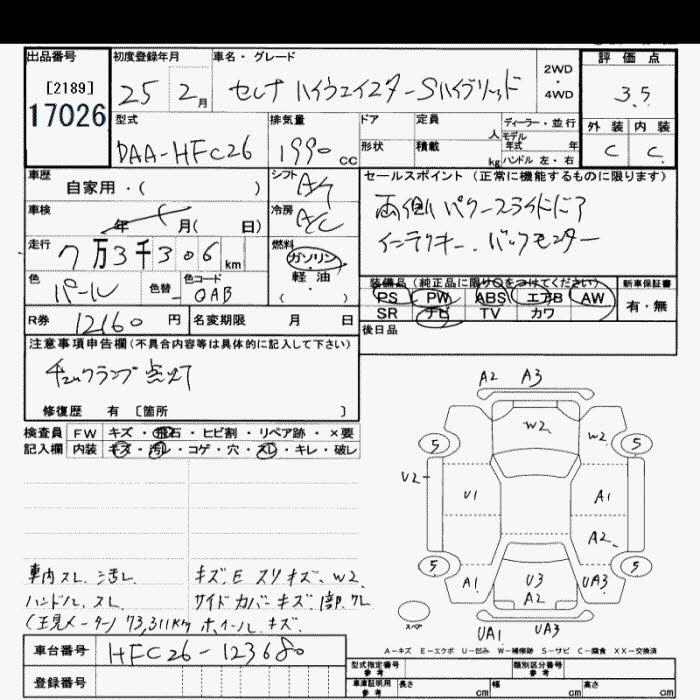 出品番号 初度登録年月 車名・グレード 2WD 4WD 評価点
[2189] 17026 25 2月 セレナ ハイウェイスター Sハイブリッド 3.5
型式 排気量 ドア 定員 人 ディーラー・並行 外装 内装
DAA-HFC26 1990cc 形状 積載 kg モデル年式 年 ハンドル 左・右 C C
車歴 シフト A/T セールスポイント(正常に機能するものに限ります)
自家用・( )
車検 年 月( 日) 冷房 A/C 両側パワースライドドア
走行 7万3千306km 燃料 ガソリン・軽・油( ) インテリキー、バックモニター
色 パール 色替 色コード QAB 装備品(純正品に限り○をつけてください) 新車保証書
PS PW ABS エアB AW 有・無
SR ナビ TV カワ
R券 12160円 名変期限 月 日 後日品
注意事項申告欄(不具合内容等は具体的に記入して下さい)
チェックランプ点灯
修復歴 有 [箇所 ]
検査員 FW キズ・飛石・ヒビ割・リペア跡・×要
記入欄 内装 キズ・汚レ・コゲ・穴・スレ・キレ・破レ
A2 A3
W2 W2
5 5
V2 U1 A1
A2
5 5
A1 U3 A2 UA3
スペア UA1 UA3
車内スレ、汚レ キズ、E スリキズ、W2
ハンドル、スレ サイドカバーキズ
(現メーター) 73,311km ホイールキズ
A-キズ E-エクボ U-凹み W-補修跡 S-サビ C-腐食 XX-交換済
車台番号 HFC26-123680
登録番号
型式指定番号 参考 類別区分番号 参考
車庫証明用 参考 長さ cm 幅 cm 高さ cm